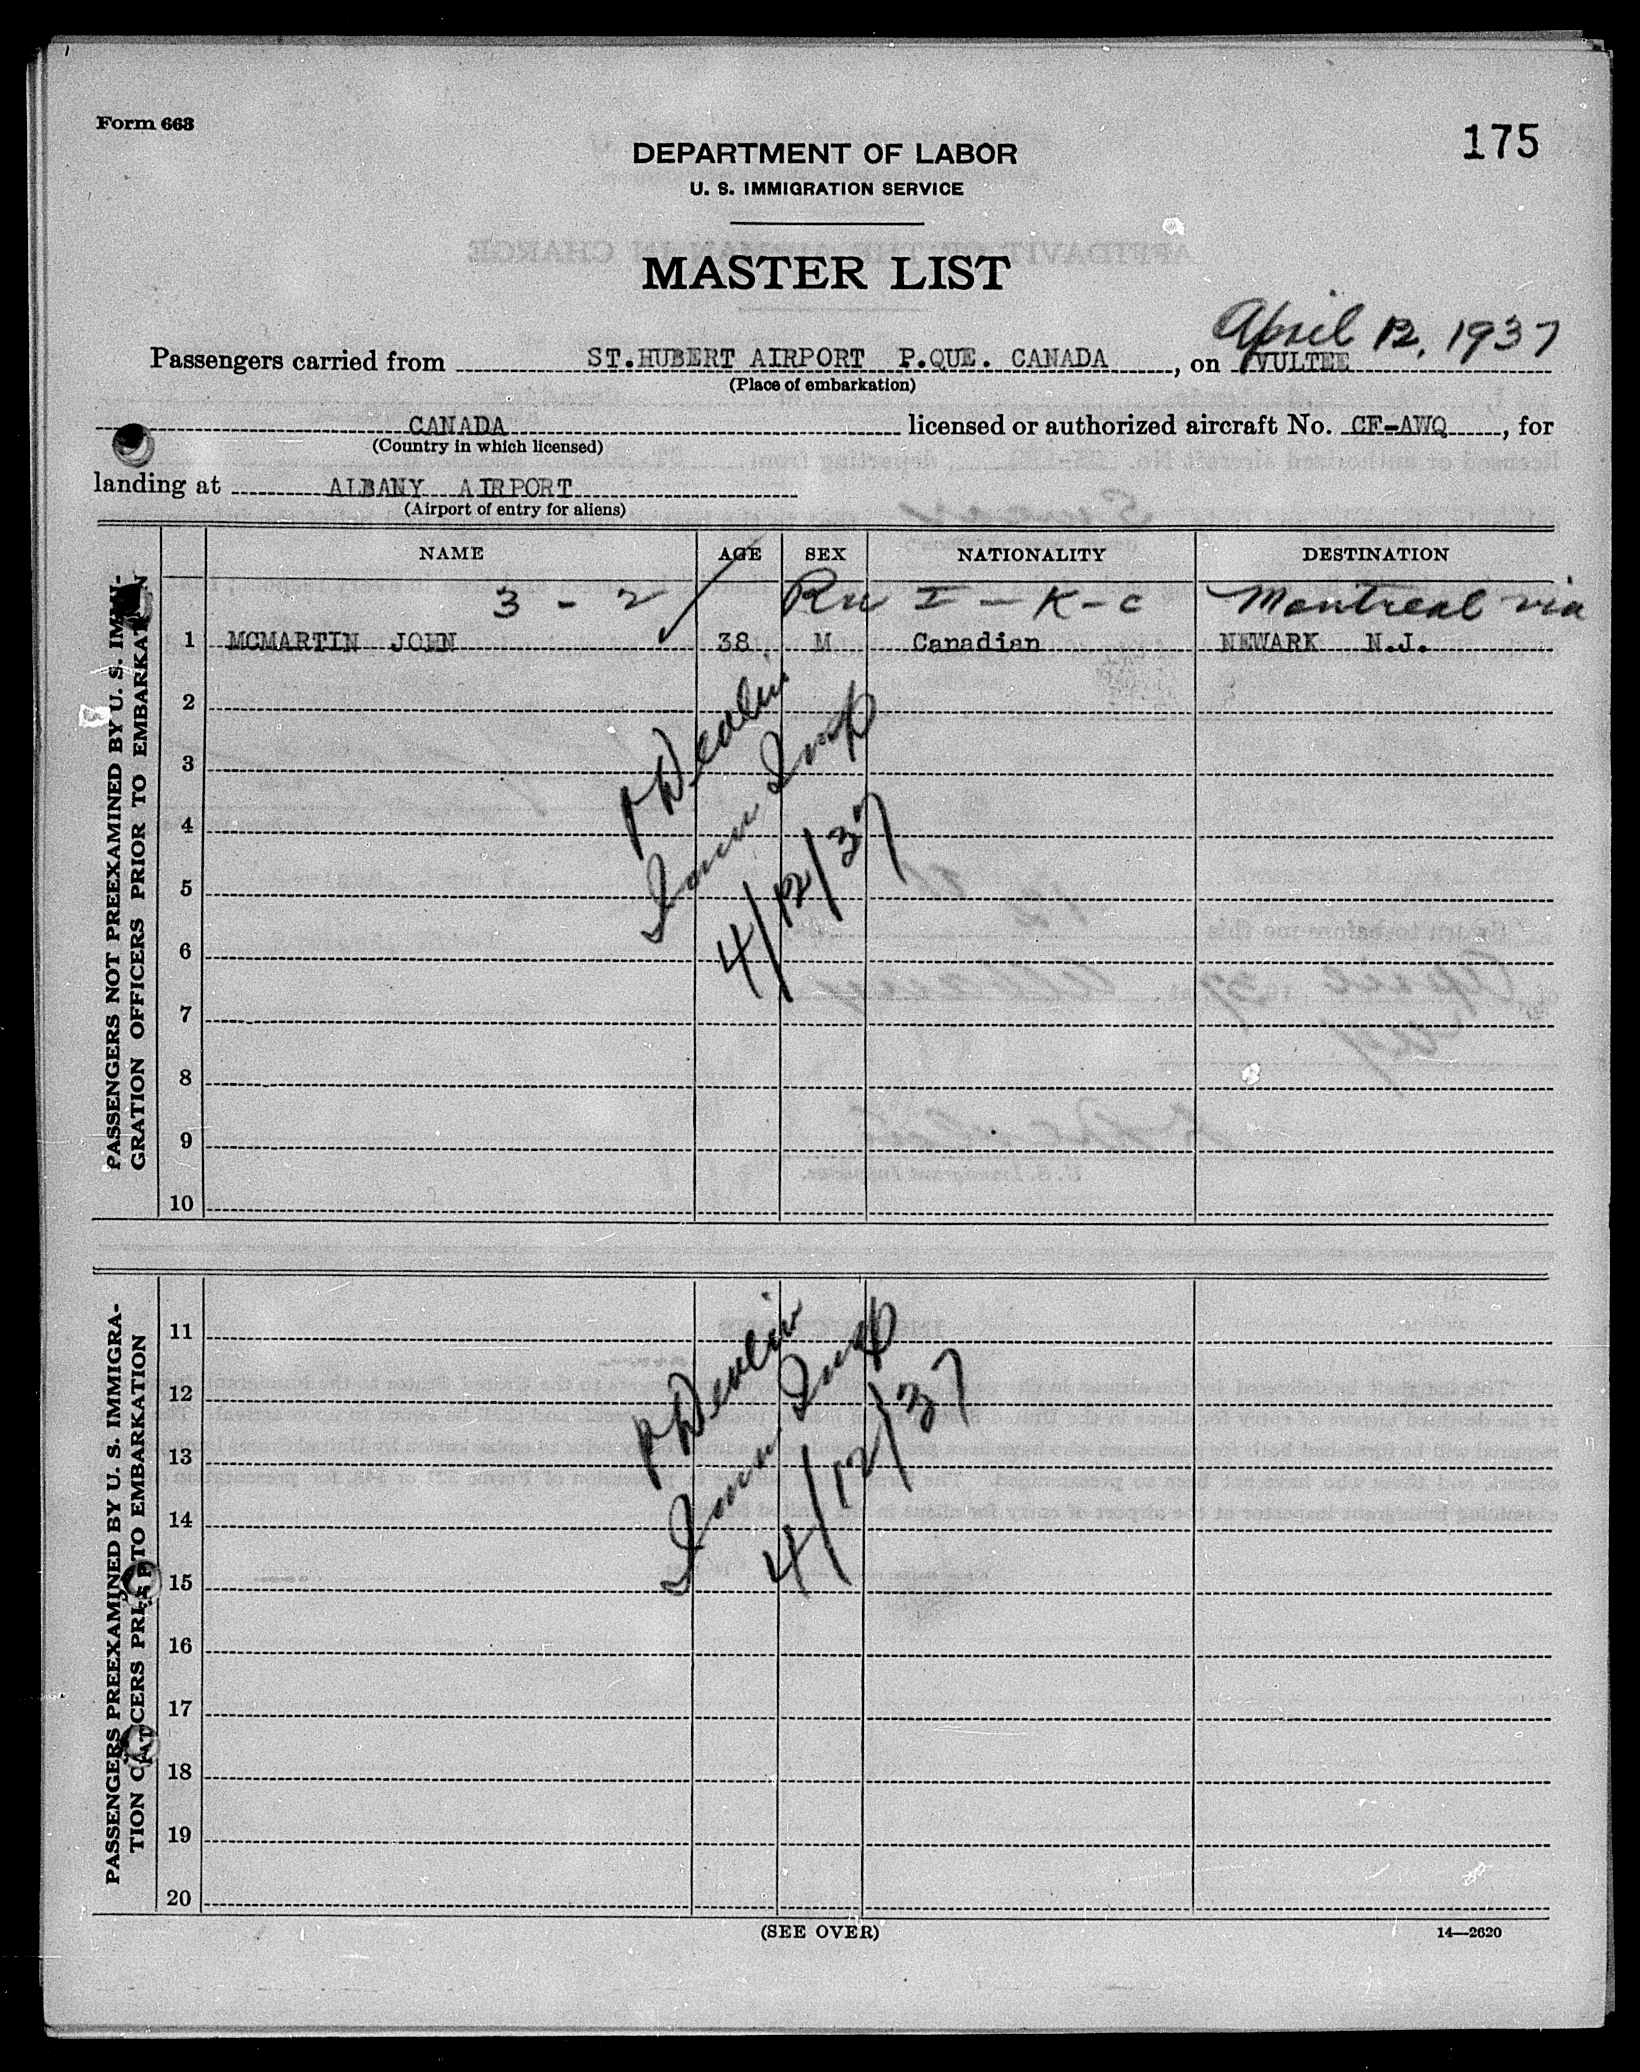 Form 668
175
DEPARTMENT OF LABOR
U. S. IMMIGRATION SERVICE
MASTER LIST
April 12, 1937
Passengers carried from ST.HUBERT AIRPORT P.QUE. CANADA, on VULTEE
(Place of embarkation)
CANADA licensed or authorized aircraft No. CF-AWQ, for
(Country in which licensed)
landing at ALBANY AIRPORT
(Airport of entry for aliens)
PASSENGERS NOT PREEXAMINED BY U. S. IMMI-
GRATION OFFICERS PRIOR TO EMBARKATION
NAME AGE SEX NATIONALITY DESTINATION
3 - 2 I - K - C Montreal via
1 MCMARTIN JOHN 38 M Canadian NEWARK N.J.
2
3
4
5
6
7
8
9
10
Devlin
Imm Insp
4/12/37
PASSENGERS PREEXAMINED BY U. S. IMMIGRA-
TION OFFICERS PRIOR TO EMBARKATION
11
12
13
14
15
16
17
18
19
20
Devlin
Imm Insp
4/12/37
(SEE OVER)
14—2620